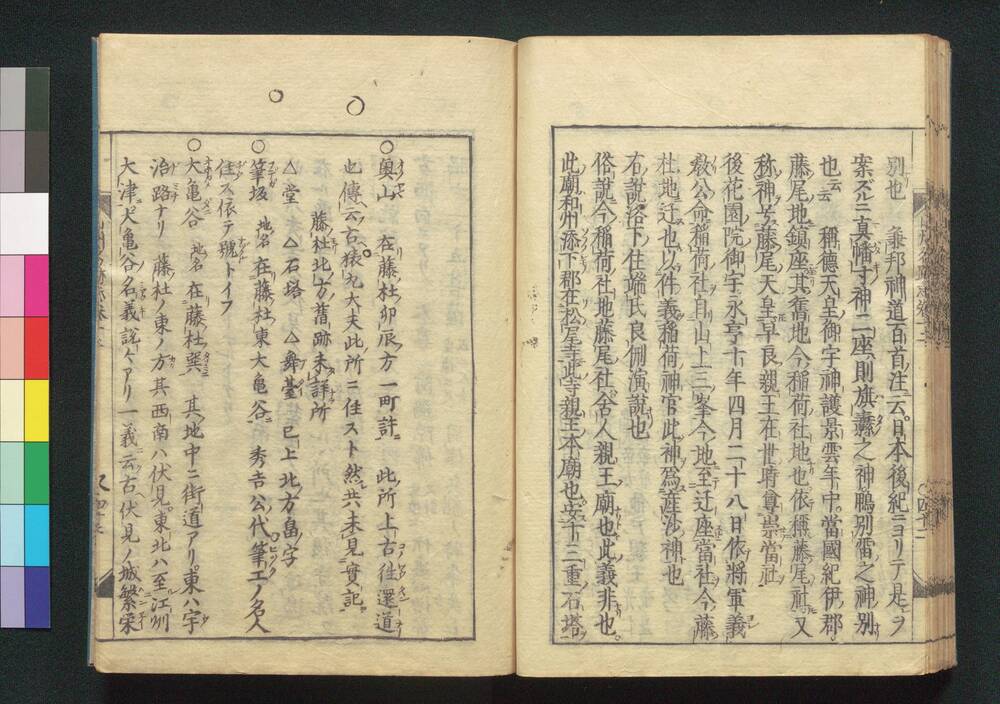 別也　兼邦神道百首注云日本後紀ニヨリテ是ヲ
案ズルニ真幡寸神二座則旗纛之神鴨別雷之神別
也云云　稱徳天皇御宇神護景雲年中當國紀伊郡
藤尾地鎮座其舊地今稲荷社地也依稱藤尾社又
称神号藤尾天皇早良親王在世時尊崇當社
後花園院御宇永享十年四月二十八日依將軍義
教公命稲荷社自山上三峯今地至迁座當社今藤
杜地迁也以件義稲荷神官此神爲産沙神也
右說洛下住端氏良側演說也
俗說今稲荷社地藤尾社舎人親王廟也此義非也
此廟和州添下郡在松尾寺此寺親王本廟也安十三重石塔
○奥山　在藤杜卯辰方一町許　此所上古往還道
也傳云古猿丸大夫此所ニ住スト然共未見實記
藤杜北方舊跡未詳所
△堂　△石塔　△舞臺　已上北方畠字
○筆坂　地名　在藤杜東大亀谷　秀吉公代筆工ノ名人
住ス依テ號トイフ
○大亀谷　地名　在藤杜巽　其地中ニ街道アリ東ハ宇
治路ナリ　藤杜ノ東ノ方其西南ハ伏見東北ハ至江州
大津犬亀谷名義說々アリ一義云古伏見ノ城繁栄